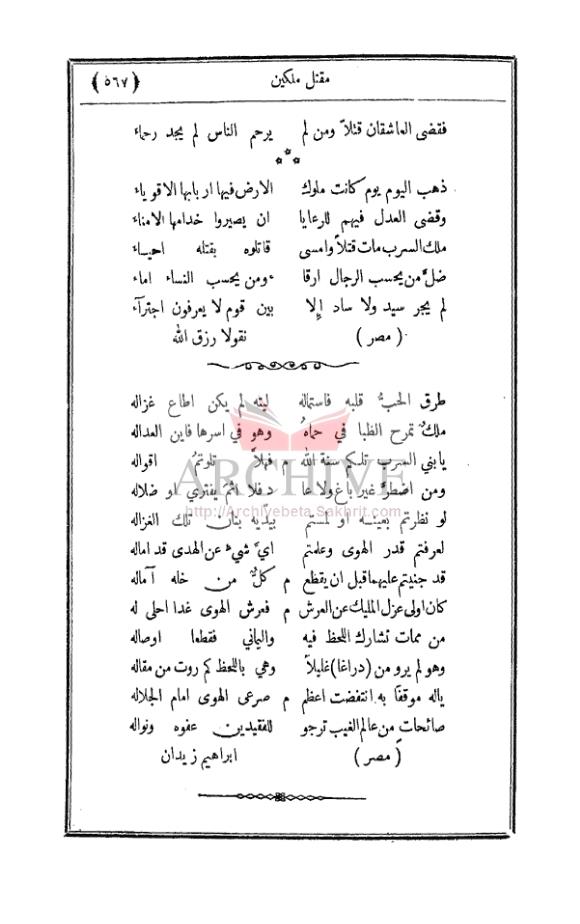 مقتل ملكين
﴿ ٥٦٧ ﴾
فقضى العاشقان قتلاً ومن لم يرحم الناس لم يجد رحماء
ذهب اليوم يوم كانت ملوك الارض فيها اربابها الاقوياء
وقضى العدل فيهم للرعايا ان يصيروا خدامها الامناء
ملك السرب مات قتلاً وامسى قاتلوه بقتله احياء
ضلَّ من يحسب الرجال ارقا ءومن يحسب النساء اماء
لم يجر سيد ولا ساد إلا بين قوم لا يعرفون اجترآء
( مصر ) نقولا رزق الله
طرق الحبُّ قلبه فاستماله ليته لم يكن اطاع غزاله
ملكٌ تمرح الظبا في حماهُ وهو في اسرها فاين العداله
يا بني السرب تلكم سنة الله م فهلاَّ تلوتمُ اقواله
ومن اضطرَّ غير باغٍ ولا عا دٍ فلا اثم يفتري او ضلاله
لو نظرتم بعينه او لمستم بيديه بنان تلك الغزاله
لعرفتم قدر الهوى وعلمتم ايَّ شيءٍ عن الهدى قد اماله
قد جنيتم عليهما قبل ان يقطع م كلٌّ من خله آماله
كان اولى عزل المليك عن العرش م فعرش الهوى غدا احلى له
من ممات تشارك اللحظ فيه واليماني فقطعا اوصاله
وهو لم يرو من (دراغا) غليلاً وهي باللحظ كم روت من مقاله
ياله موقفاً به انتفضت اعظم م صرعى الهوى امام الجلاله
صائحاتٍ من عالم الغيب ترجو للفقيدين عفوه ونواله
( مصر ) ابراهيم زيدان
ARCHIVE
http://Archivebeta.Sakhrit.com